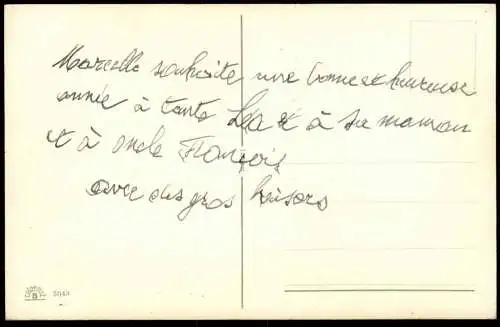 Marcelle souhaite une bonne et heureuse
année à tante Léa et à sa maman
et à oncle François
avec des gros baisers